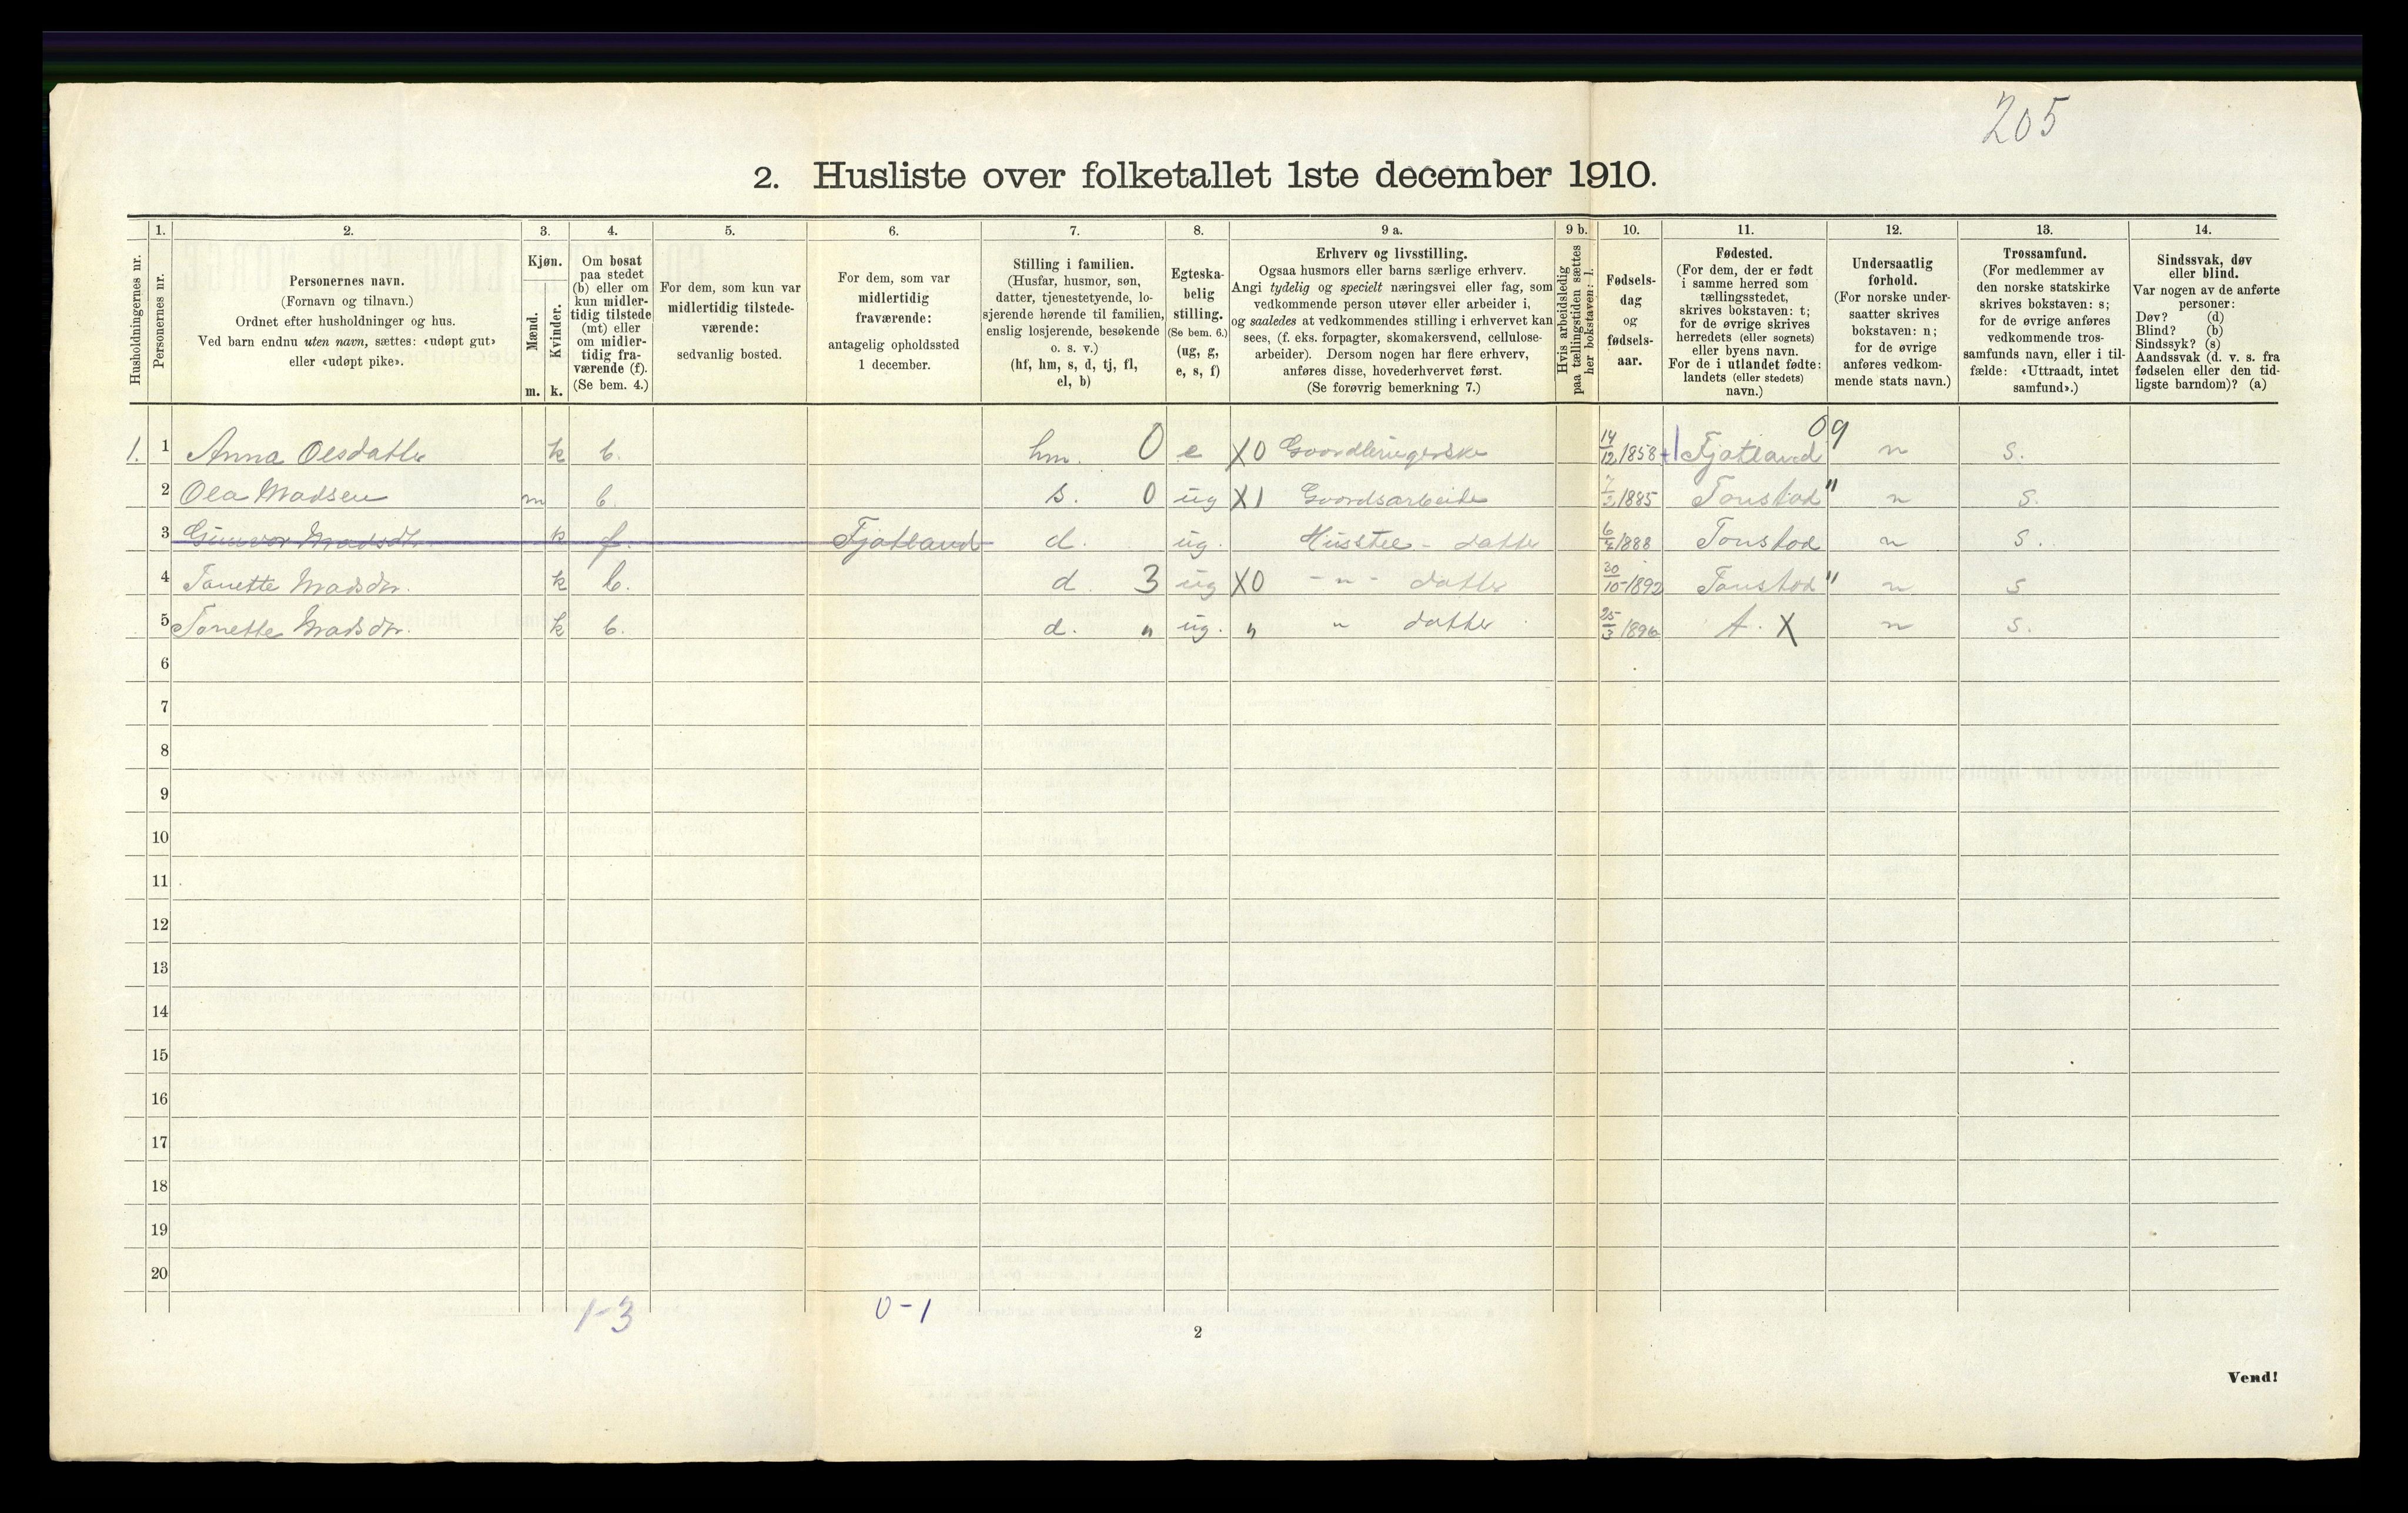 205
2. Husliste over folketallet 1ste december 1910.
Husholdningernes nr.
1.
Personernes nr.
2.
Personernes navn.
(Fornavn og tilnavn.)
Ordnet efter husholdninger og hus.
Ved barn endnu uten navn, sættes: «udøpt gut»
eller «udøpt pike».
3.
Kjøn.
Mænd.
Kvinder.
m. k.
4.
Om bosat
paa stedet
(b) eller om
kun midler-
tidig tilstede
(mt) eller
om midler-
tidig fra-
værende (f).
(Se bem. 4.)
5.
For dem, som kun var
midlertidig tilstede-
værende:
sedvanlig bosted.
6.
For dem, som var
midlertidig
fraværende:
antagelig opholdssted
1 december.
7.
Stilling i familien.
(Husfar, husmor, søn,
datter, tjenestetyende, lo-
sjerende hørende til familien,
enslig losjerende, besøkende
o. s. v.)
(hf, hm, s, d, tj, fl,
el, b)
8.
Egteska-
belig
stilling.
(Se bem. 6.)
(ug, g,
e, s, f)
9 a.
Erhverv og livsstilling.
Ogsaa husmors eller barns særlige erhverv.
Angi tydelig og specielt næringsvei eller fag, som
vedkommende person utøver eller arbeider i,
og saaledes at vedkommendes stilling i erhvervet kan
sees, (f. eks. forpagter, skomakersvend, cellulose-
arbeider). Dersom nogen har flere erhverv,
anføres disse, hovederhvervet først.
(Se forøvrig bemerkning 7.)
9 b.
Hvis arbeidsledig
paa tællingstiden sættes
her bokstaven: l.
10.
Fødsels-
dag
og
fødsels-
aar.
11.
Fødested.
(For dem, der er født
i samme herred som
tællingsstedet,
skrives bokstaven: t;
for de øvrige skrives
herredets (eller sognets)
eller byens navn.
For de i utlandet fødte:
landets (eller stedets)
navn.)
12.
Undersaatlig
forhold.
(For norske under-
saatter skrives
bokstaven: n;
for de øvrige
anføres vedkom-
mende stats navn.)
13.
Trossamfund.
(For medlemmer av
den norske statskirke
skrives bokstaven: s;
for de øvrige anføres
vedkommende tros-
samfunds navn, eller i til-
fælde: «Uttraadt, intet
samfund».)
14.
Sindssvak, døv
eller blind.
Var nogen av de anførte
personer:
Døv? (d)
Blind? (b)
Sindssyk? (s)
Aandssvak (d. v. s. fra
fødselen eller den tid-
ligste barndom)? (a)
1. 1 Anna Olsdatter k b. hm. 0 e X0 Goordbrugerske 14/12 1858 +| Fjotland 09 n s.
2 Ola Madsen m b. s. 0 ug X1 Goordsarbeide 7/2 1885 Tonstad " n s.
3 Gunvor Madsdtr. k f. Fjotland d. ug. Husstel - datter 1888 Tonstad n s.
4 Tonette Madsdtr. k b. d. 3 ug X0 - " - datter 30/10 1892 Tonstad " n s
5 Tonette Madsdtr. k b. d. " ug. " " datter 25/3 1896 t. X n s.
6
7
8
9
10
11
12
13
14
15
16
17
18
19
20
1-3 0-1
2
Vend!